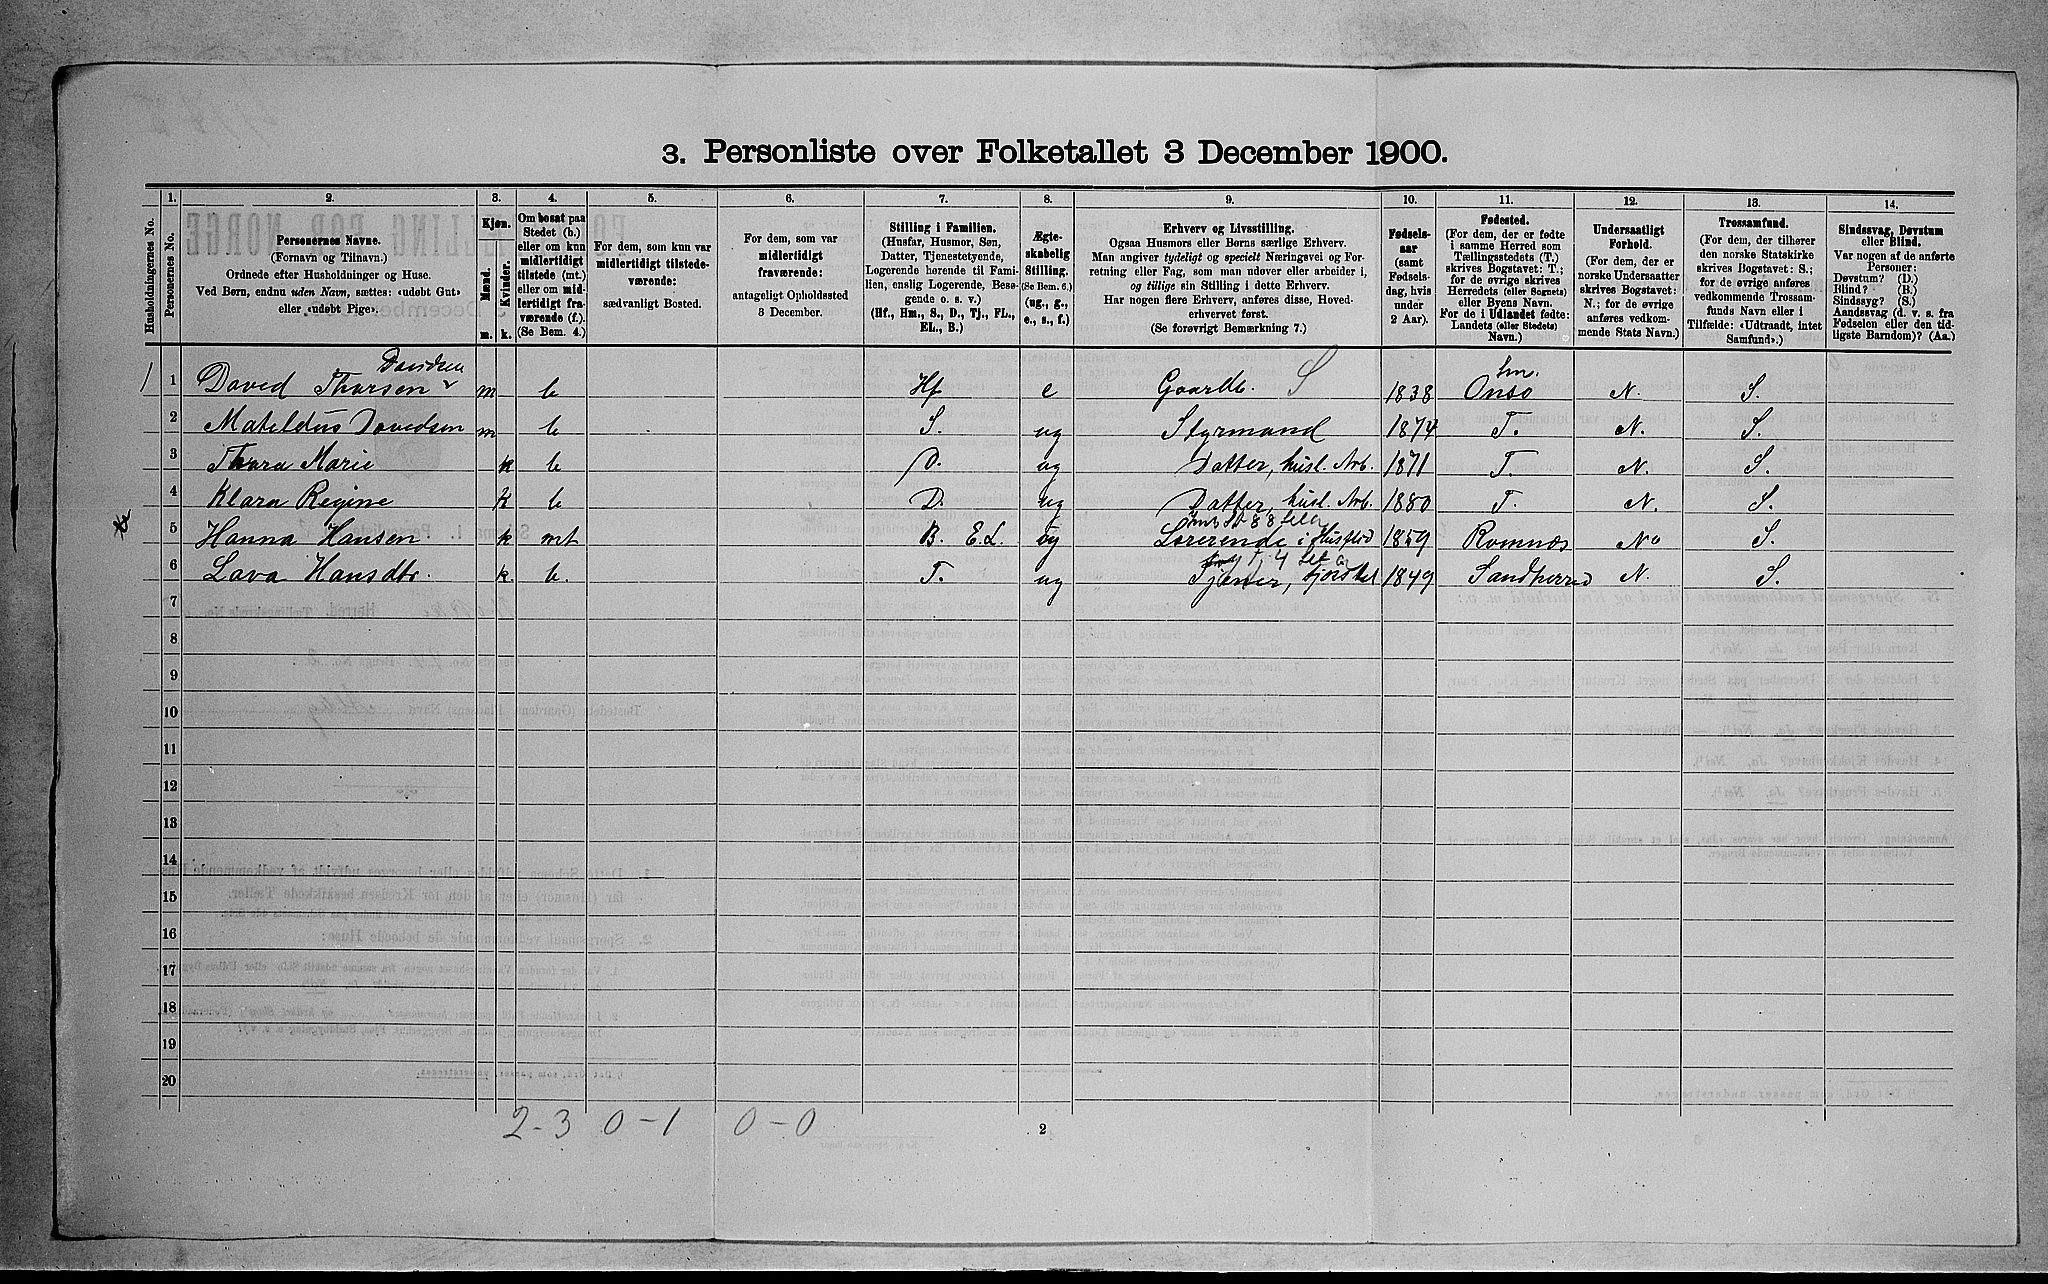 3. Personliste over Folketallet 3 December 1900.
Husholdningernes No.
1. Personernes No.
2. Personernes Navne.
(Fornavn og Tilnavn.)
Ordnede efter Husholdninger og Huse.
Ved Børn, endnu uden Navn, sættes: «udøbt Gut»
eller «udøbt Pige».
3. Kjøn.
Mænd. m.
Kvinder. k.
4. Om bosat paa
Stedet (b.)
eller om kun
midlertidigt
tilstede (mt.)
eller om mid-
lertidigt fra-
værende (f.).
(Se Bem. 4.)
5. For dem, som kun var
midlertidigt tilstede-
værende:
sædvanligt Bosted.
6. For dem, som var
midlertidigt
fraværende:
antageligt Opholdssted
3 December.
7. Stilling i Familien.
(Husfar, Husmor, Søn,
Datter, Tjenestetyende,
Logerende hørende til Fami-
lien, enslig Logerende, Besø-
gende o. s. v.)
(Hf., Hm., S., D., Tj., FL.,
EL., B.)
8. Ægte-
skabelig
Stilling.
(Se Bem. 6.)
(ug., g.,
e., s., f.)
9. Erhverv og Livsstilling.
Ogsaa Husmors eller Børns særlige Erhverv.
Man angiver tydeligt og specielt Næringsvei og For-
retning eller Fag, som man udøver eller arbeider i,
og tillige sin Stilling i dette Erhverv.
Har nogen flere Erhverv, anføres disse, Hoved-
erhvervet først.
(Se forøvrigt Bemærkning 7.)
10. Fødsels-
aar
(samt
Fødsels-
dag, hvis
under
2 Aar).
11. Fødested.
(For dem, der er fødte
i samme Herred som
Tællingsstedets (T.)
skrives Bogstavet: T.;
for de øvrige skrives
Herredets (eller Sognets)
eller Byens Navn.
For de i Udlandet fødte:
Landets (eller Stedets)
Navn.)
12. Undersaatligt
Forhold.
(For dem, der er
norske Undersaatter
skrives Bogstavet:
N.; for de øvrige
anføres vedkom-
mende Stats Navn.)
13. Trossamfund.
(For dem, der tilhører
den norske Statskirke
skrives Bogstavet: S.;
for de øvrige anføres
vedkommende Trossam-
funds Navn eller i
Tilfælde: «Udtraadt, intet
Samfund».)
14. Sindssvag, Døvstum
eller Blind.
Var nogen af de anførte
Personer:
Døvstum? (D.)
Blind? (B.)
Sindssyg? (S.)
Aandssvag (d. v. s. fra
Fødselen eller den tid-
ligste Barndom)? (Aa.)
Davidsen
1 1 David Thorsen m b Hf e Gaardb. S 1838 Onsø Sm. N. S.
2 Mateldus Davedsen m b S. ug Styrmand 1874 T. N. S.
3 Thora Marie k b D. ug Datter, husl. Arb. 1871 T. N. S.
4 Klara Regine k b D. ug Datter, husl. Arb. 1880 T. N. S.
5 Hanna Hansen k mt B. E.L. ug Lærerende i Husflid 1859 Ramnæs N. S.
6 Lava Hansdtr. k. b. T. ug Tjener, fjøsstel 1849 Sandherred N. S.
7
8
9
10
11
12
13
14
15
16
17
18
19
20
2-3 0-1 0-0
2